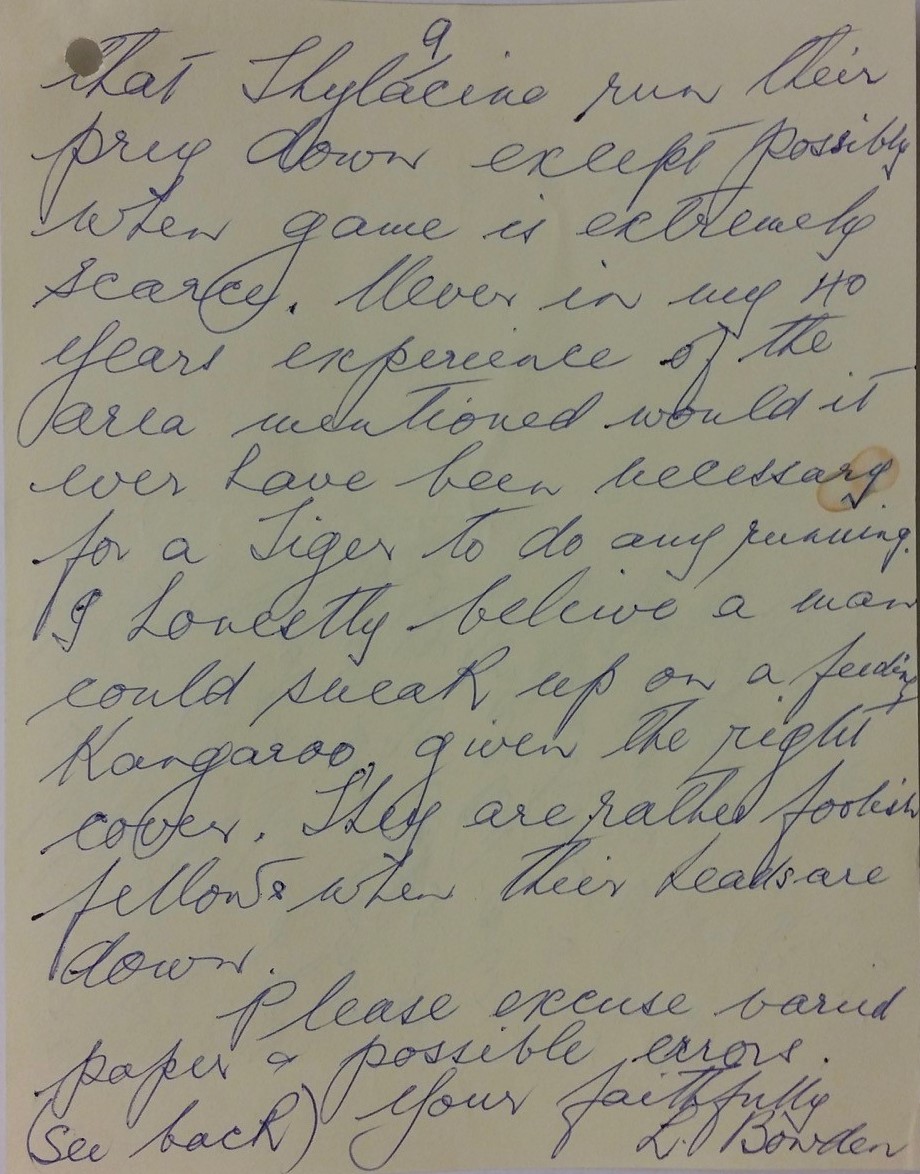 9
that Thylacine run their
prey down except possibly
when game is extremely
scarce. Never in my 40
years experience of the
area mentioned would it
ever have been necessary
for a Tiger to do any running.
I honestly beleive a man
could sneak up on a feeding
Kangaroo, given the right
cover. They are rather foolish
fellows when their heads are
down.
Please excuse varied
paper & possible errors.
(See back) Your faithfully
L. Bowden